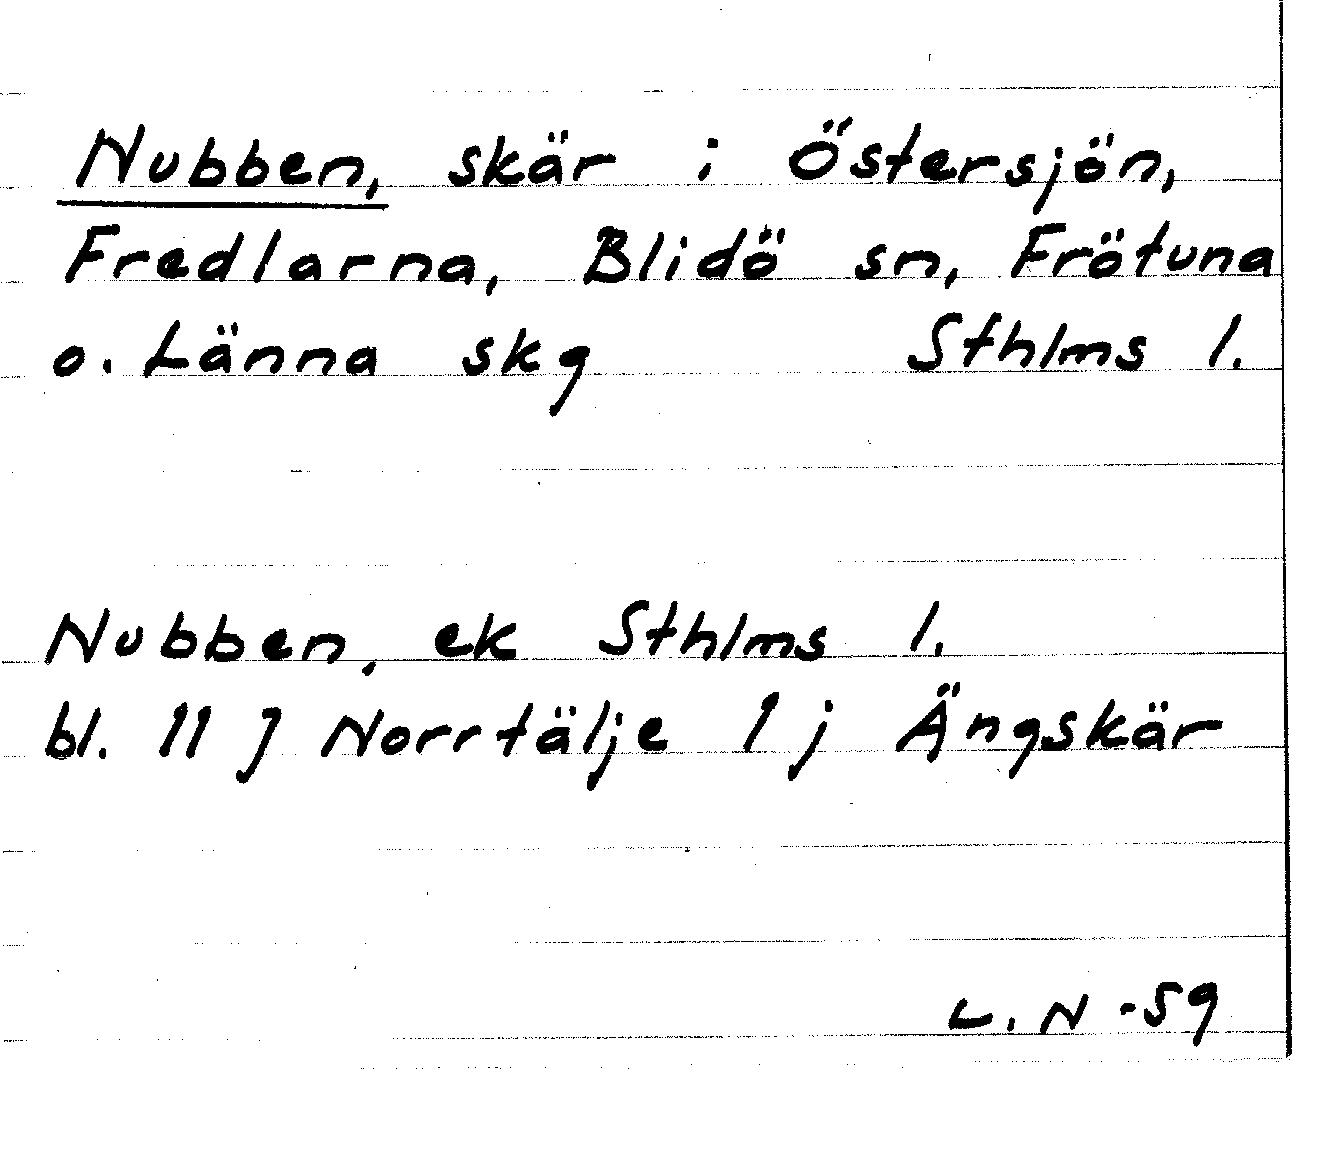 Nubben, skär i Östersjön,
Fredlarna, Blidö sn, Frötuna
o. Länna skg Sthlms l.
Nubben, ek Sthlms l.
bl. 11 J Norrtälje 1 j Ängskär
L. N -59